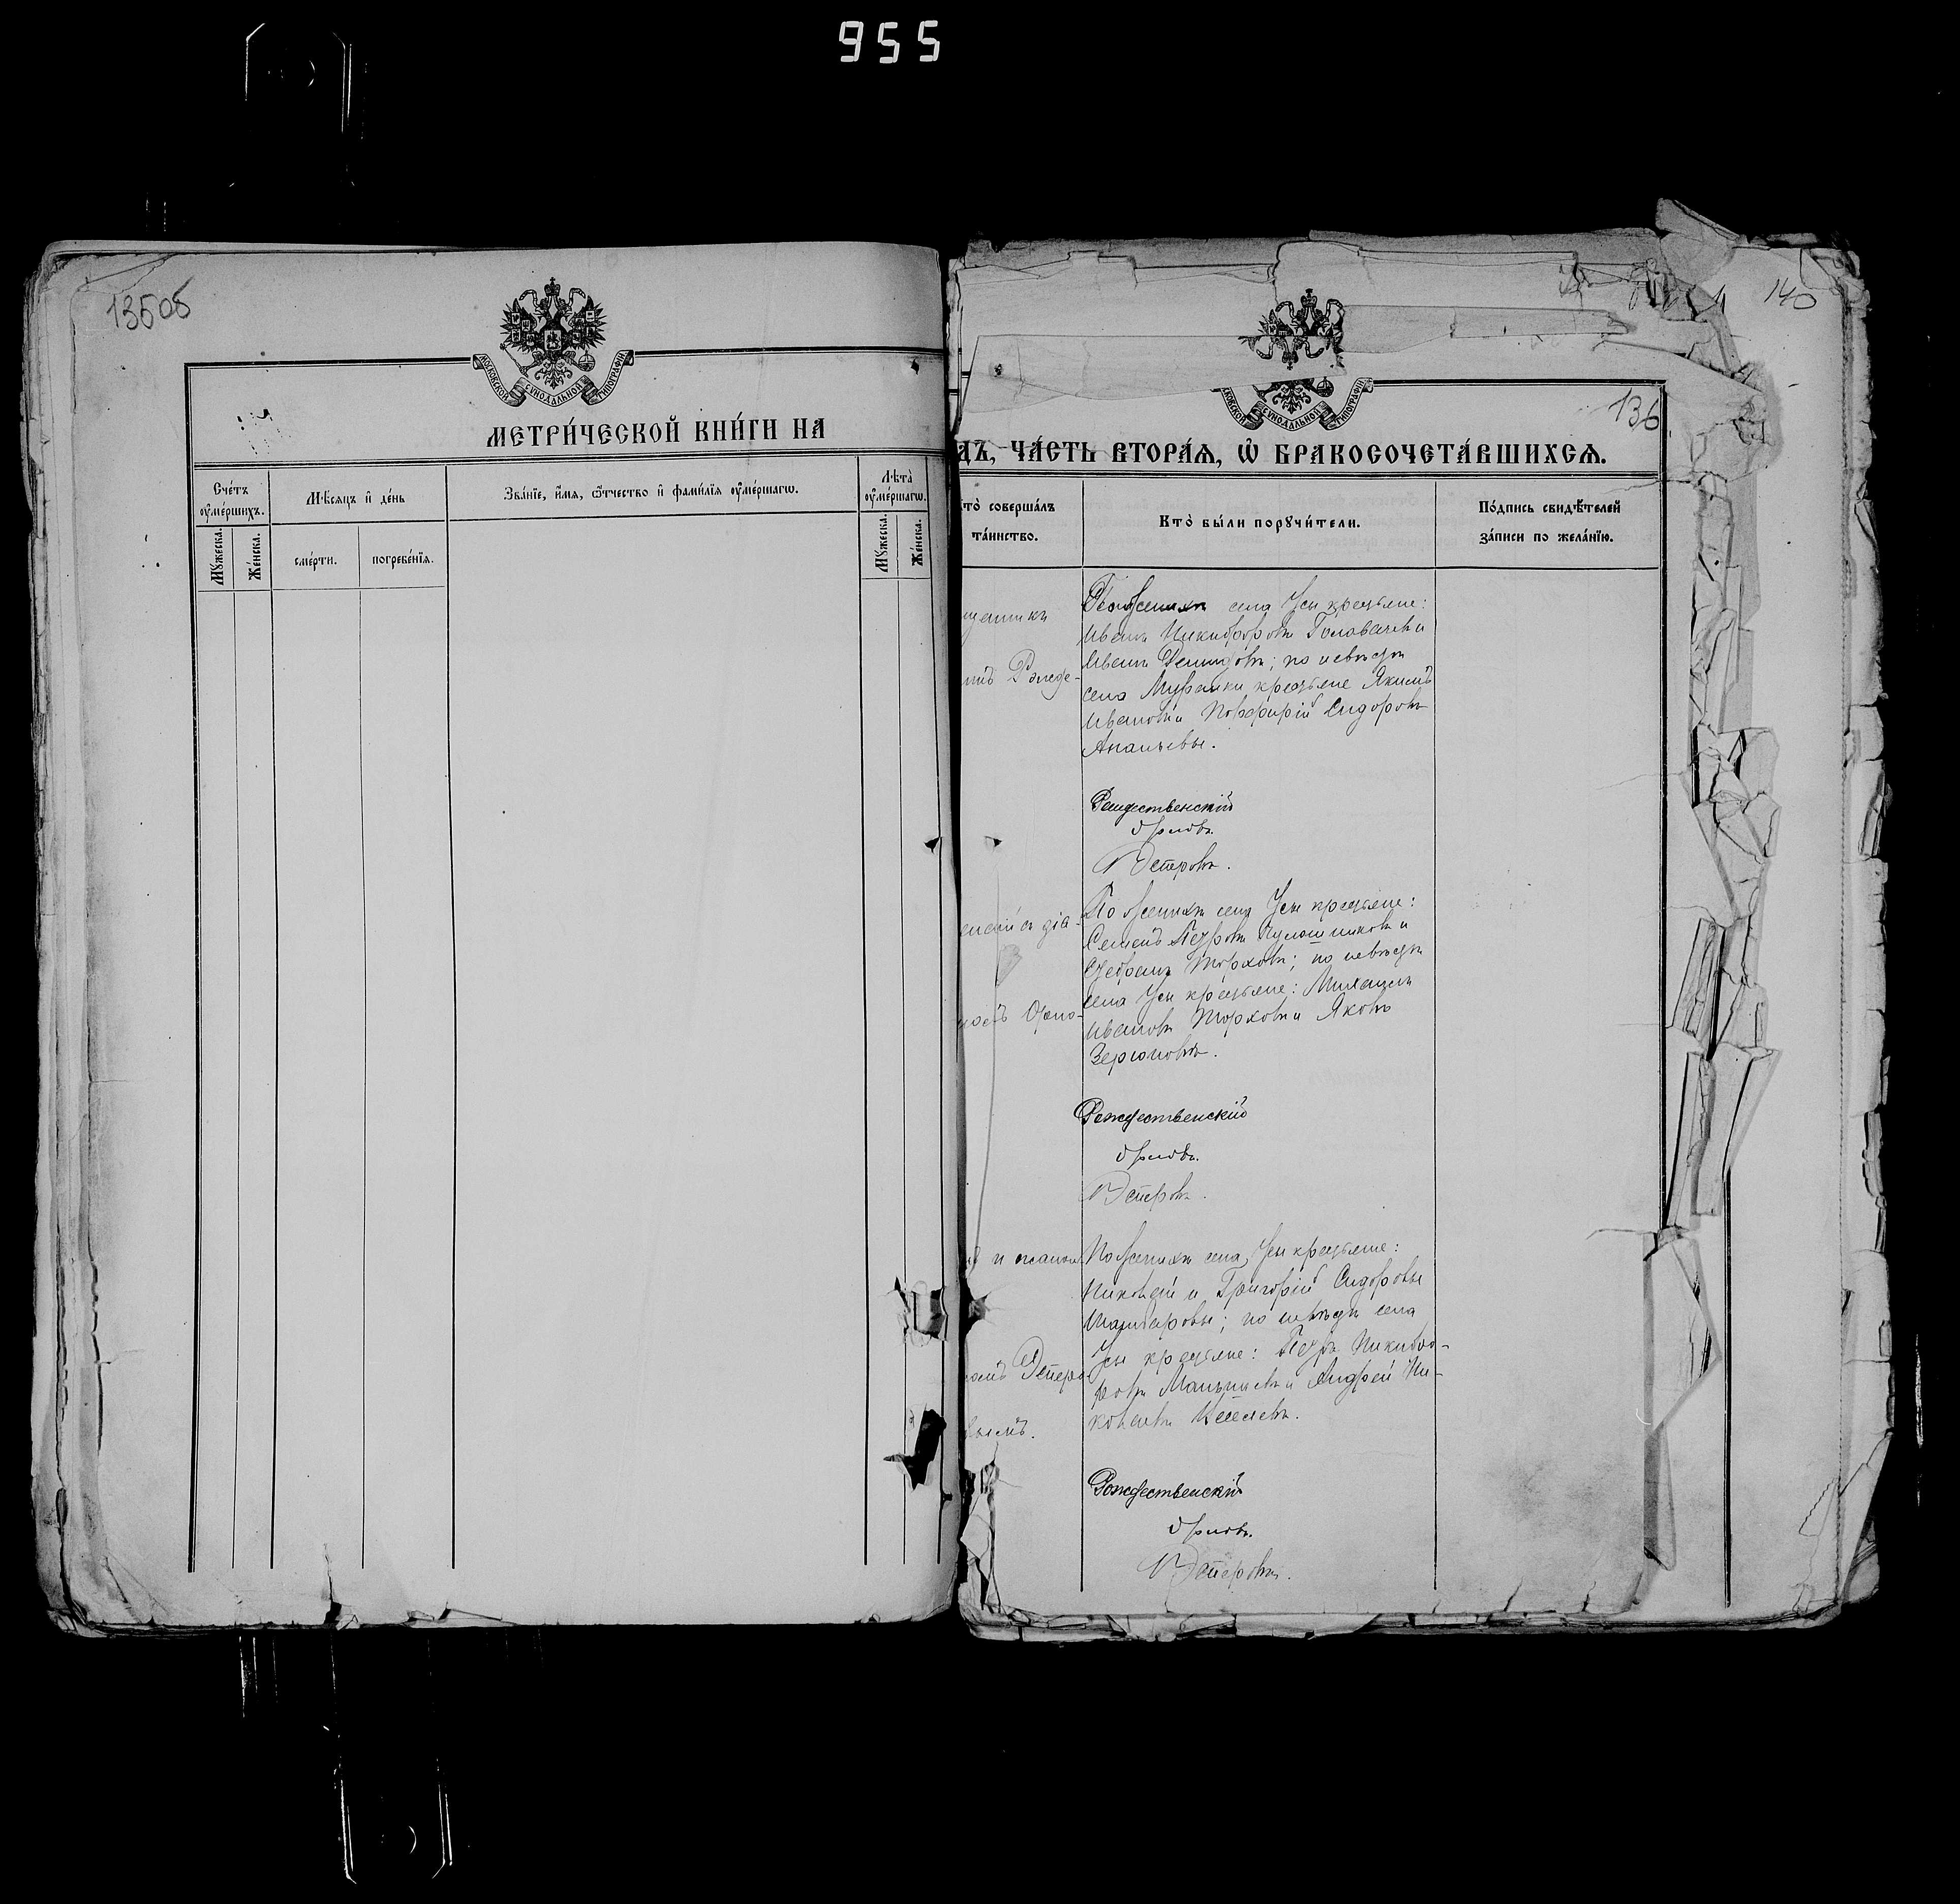 955
135об
МОСКОВСКОЙ СѴНОДАЛЬНОЙ ТИПОГРАФІИ
МЕТРИ́ЧЕСКОЙ КНИ́ГИ НА
Сче́тъ ᲂу҆ме́ршихъ.
Мꙋ́жеска.
Же́нска.
Мѣ́сяцъ и҆ де́нь
сме́рти.
погребе́нїѧ.
Зва́нїе, и҆́мѧ, ѻ҆́тчество и҆ фами́лїѧ ᲂу҆ме́ршагѡ.
Лѣ́та ᲂу҆ме́ршагѡ.
Мꙋ́жеска.
Же́нска.
140
136
СѴНОДАЛЬНОЙ ТИПОГРАФІИ
дъ, ЧА́СТЬ ВТОРА́Ѧ, Ѡ҆ БРАКОСОЧЕТА́ВШИХСѦ.
то̀ соверша́лъ
та́инство.
Кто̀ бы́ли порꙋчи́тели.
По́дпись свидѣ́телей
за́писи по жела́нїю.
По женихѣ села Усы крестьяне:
Иванъ Никифоровъ Головачевъ и
Иванъ Демидовъ; по невѣстѣ
села Муранки крестьяне Якимъ
Ивановъ и Порфирій Сидоровъ
Ананьевы.
Рождественскій
Орловъ.
Петровъ.
По женихѣ села Усы крестьяне:
Семенъ Петровъ и
Торховъ; по невѣстѣ
села Усы крестьяне: Михаилъ
Ивановъ Торховъ и Яковъ
Рождественскій
Орловъ.
Петровъ.
По женихѣ села Усы крестьяне:
Николай и Григорій Сидоровы
по невѣстѣ села
Усы крестьяне: Петръ Никифо-
ровъ и Андрей Ни-
колаевъ
Рождественскій
Орловъ.
Петровъ.